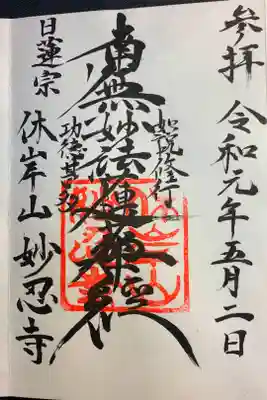 参拝 令和元年五月二日
如説修行
南無妙法蓮華経
功徳甚多
日蓮宗 休岸山 妙忍寺